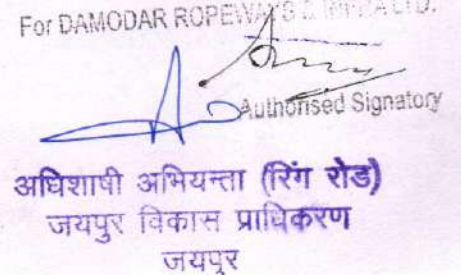 For DAMODAR ROPEWAYS & INFRA LTD.
Authorised Signatory
अधिशाषी अभियन्ता (रिंग रोड)
जयपुर विकास प्राधिकरण
जयपुर